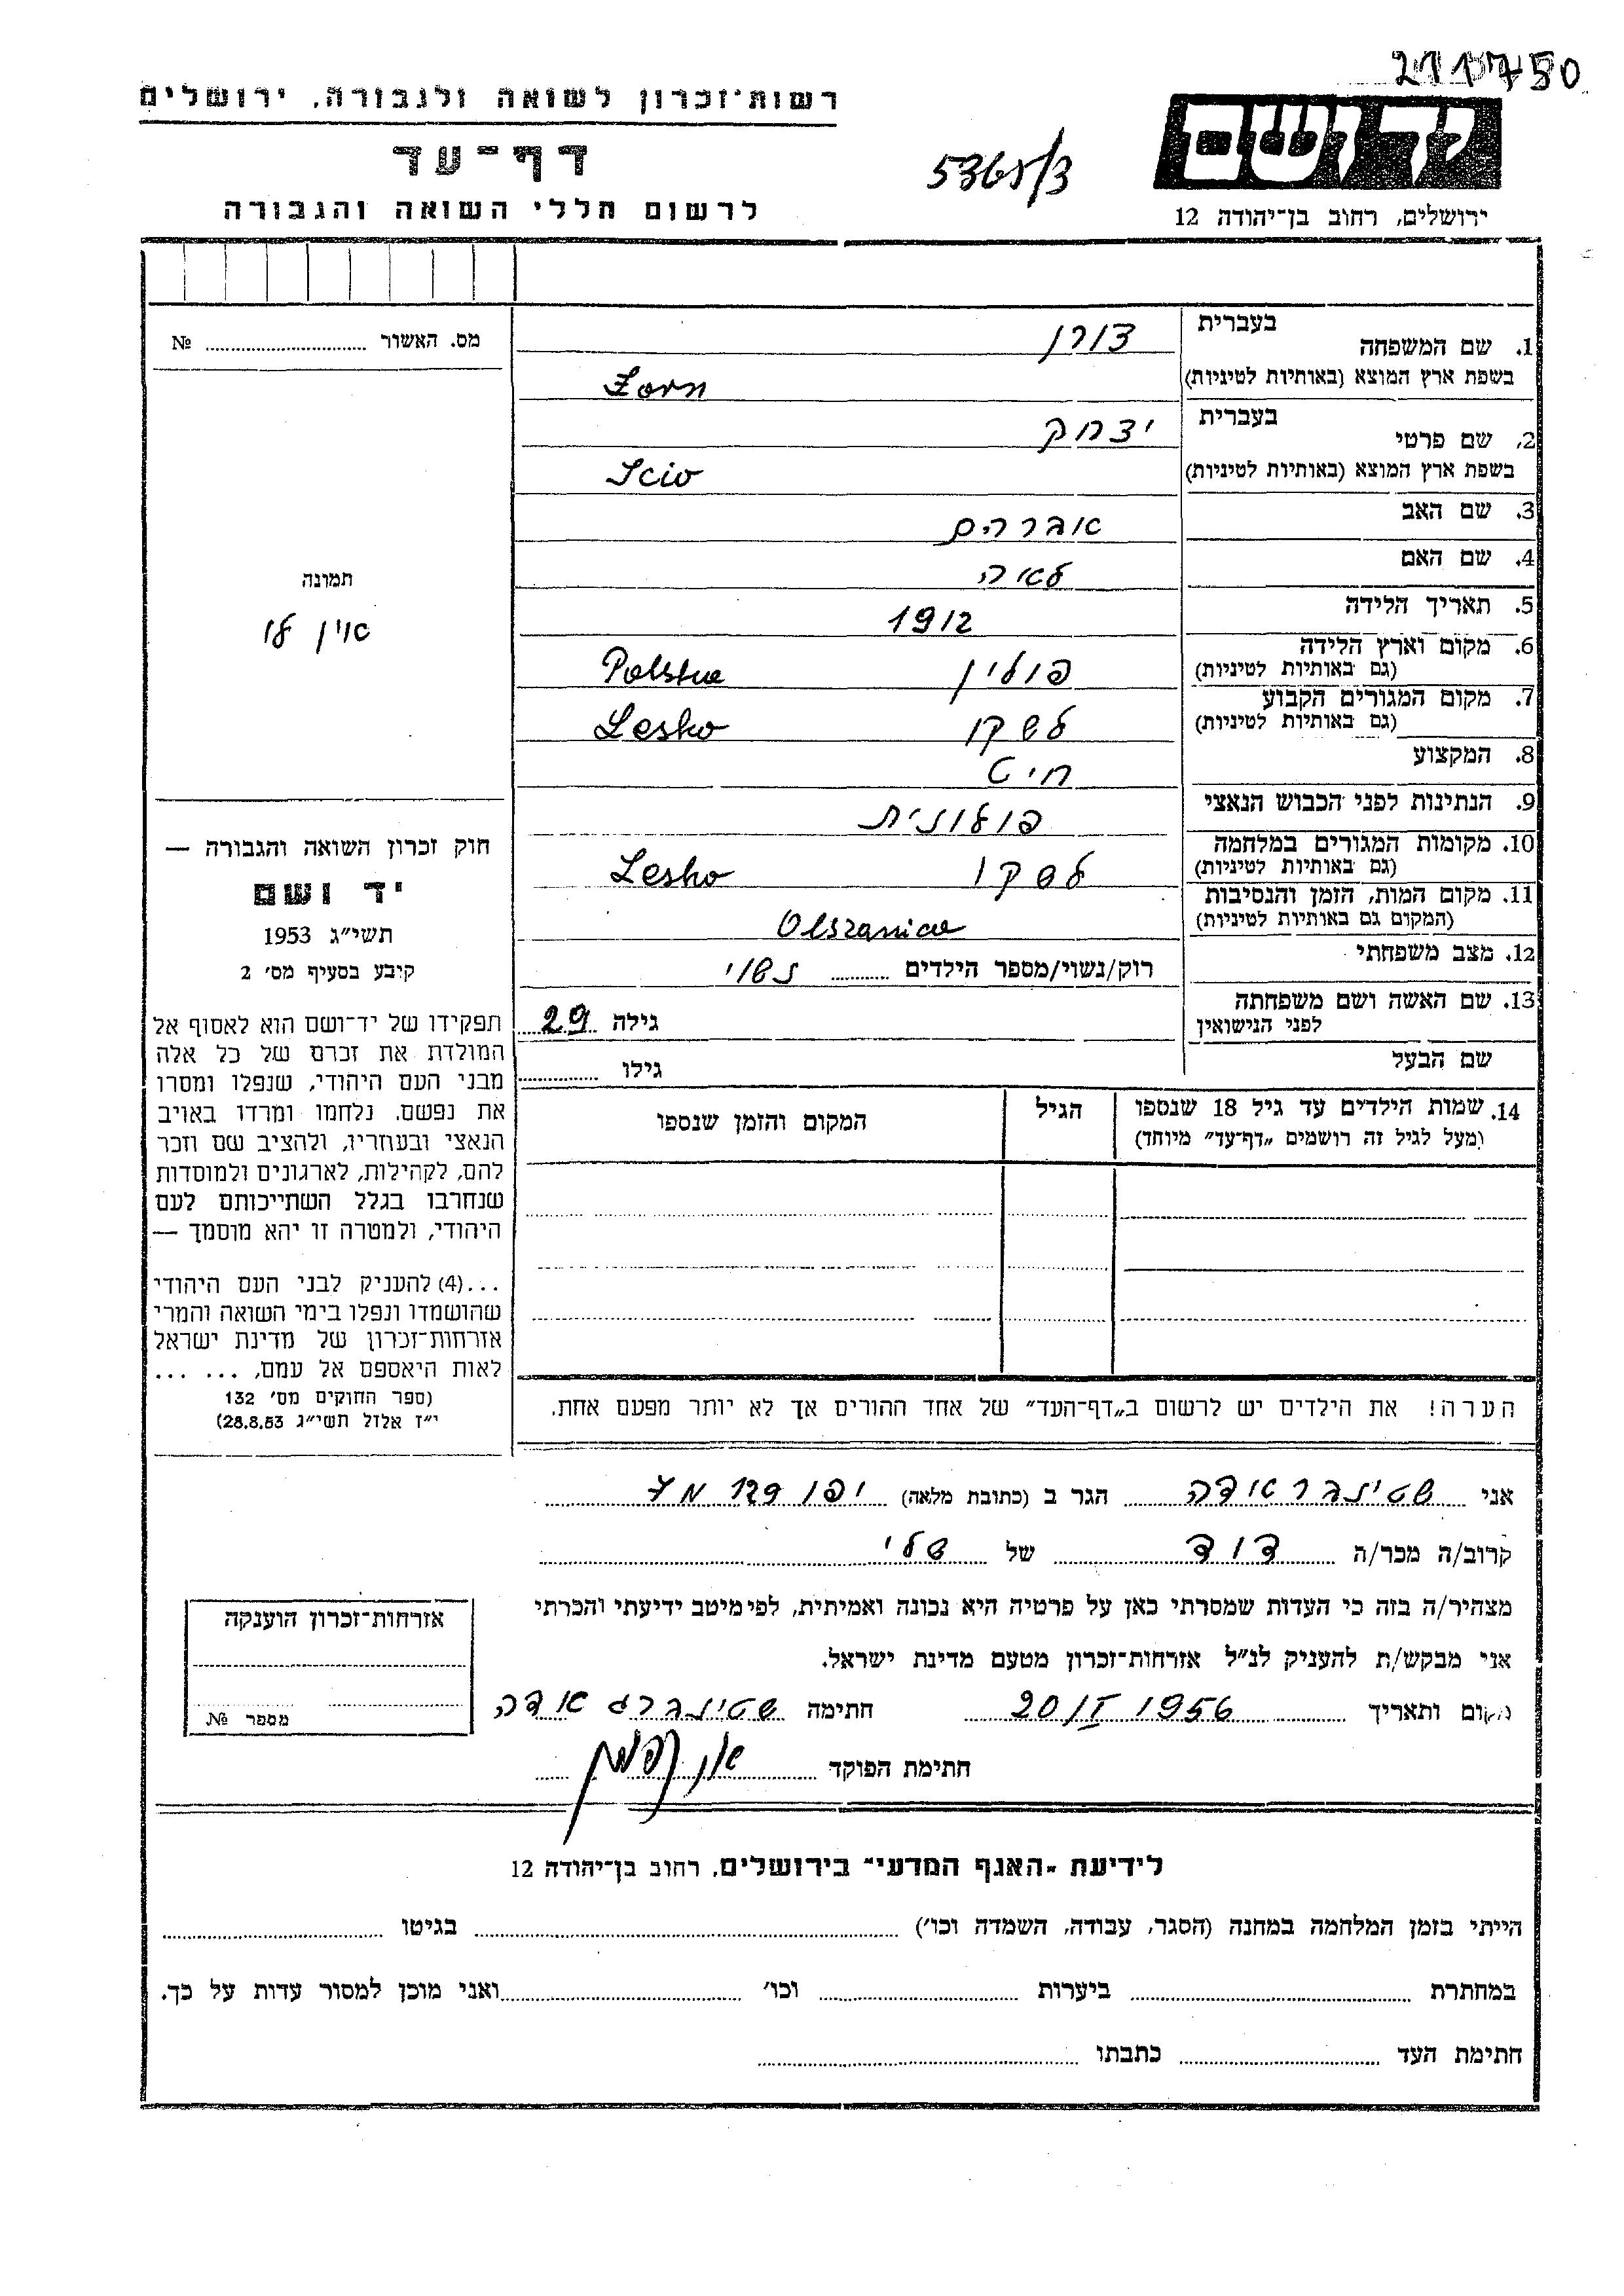 211750
רשות־זכרון לשואה ולגבורה, ירושלים
דף־עד
לרשום חללי השואה והגבורה
יד ושם
ירושלים, רחוב בן־יהודה 12
מס. האשור № ........
1. שם המשפחה בעברית צורן
בשפת ארץ המוצא (באותיות לטיניות) Zorn
2. שם פרטי בעברית יצחק
בשפת ארץ המוצא (באותיות לטיניות) Icio
3. שם האב אברהם
4. שם האם לאה
5. תאריך הלידה 1912
6. מקום וארץ הלידה (גם באותיות לטיניות) פולין Polska
7. מקום המגורים הקבוע (גם באותיות לטיניות) לשקו Lesko
8. המקצוע חיט
9. הנתינות לפני הכבוש הנאצי פולונית
10. מקומות המגורים במלחמה (גם באותיות לטיניות) לשקו Lesko
11. מקום המות, הזמן והנסיבות (המקום גם באותיות לטיניות) Olszanica
12. מצב משפחתי רוק/נשוי/מספר הילדים ........ נשוי
13. שם האשה ושם משפחתה לפני הנישואין גילה 29
שם הבעל גילו ........
14. שמות הילדים עד גיל 18 שנספו (מעל לגיל זה רושמים „דף־עד" מיוחד) הגיל המקום והזמן שנספו
הערה! את הילדים יש לרשום ב„דף־העד" של אחד ההורים אך לא יותר מפעם אחת.
תמונה
אין לו
חוק זכרון השואה והגבורה —
יד ושם
תשי"ג 1953
קיבע בסעיף מס׳ 2
תפקידו של יד־ושם הוא לאסוף אל
המולדת את זכרם של כל אלה
מבני העם היהודי, שנפלו ומסרו
את נפשם, נלחמו ומרדו באויב
הנאצי ובעוזריו, ולהציב שם וזכר
להם, לקהילות, לארגונים ולמוסדות
שנחרבו בגלל השתייכותם לעם
היהודי, ולמטרה זו יהא מוסמך —
...(4) להעניק לבני העם היהודי
שהושמדו ונפלו בימי השואה והמרי
אזרחות־זכרון של מדינת ישראל
לאות היאספם אל עמם, ... ...
(ספר החוקים מס׳ 132
י"ז אלול תשי"ג 28.8.53)
אני שטינברג אידה הגר ב (כתובת מלאה) יפו
קרוב/ה מכר/ה דוד של שלי
מצהיר/ה בזה כי העדות שמסרתי כאן על פרטיה היא נכונה ואמיתית, לפי מיטב ידיעתי והכרתי
אני מבקש/ת להעניק לנ"ל אזרחות־זכרון מטעם מדינת ישראל.
מקום ותאריך 20/I 1956 חתימה שטינברג אידה
חתימת הפוקד
אזרחות־זכרון הוענקה
מספר №
לידיעת „האגף המדעי" בירושלים, רחוב בן־יהודה 12
הייתי בזמן המלחמה במחנה (הסגר, עבודה, השמדה וכו׳) ........ בגיטו ........
במחתרת ........ ביערות ........ וכו׳ ........ ואני מוכן למסור עדות על כך.
חתימת העד ........ כתבתו ........